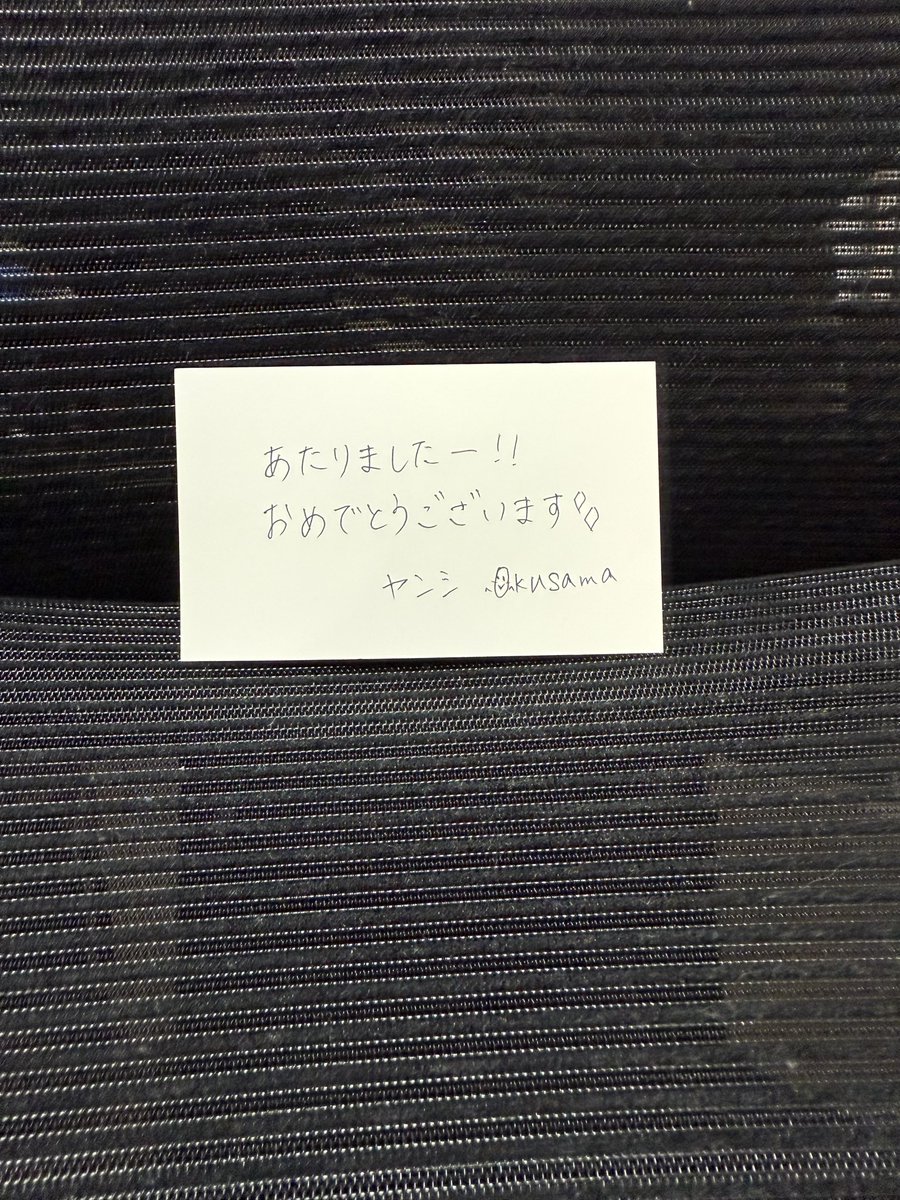 あたりましたー!!
おめでとうございます
ヤンシ Okusama